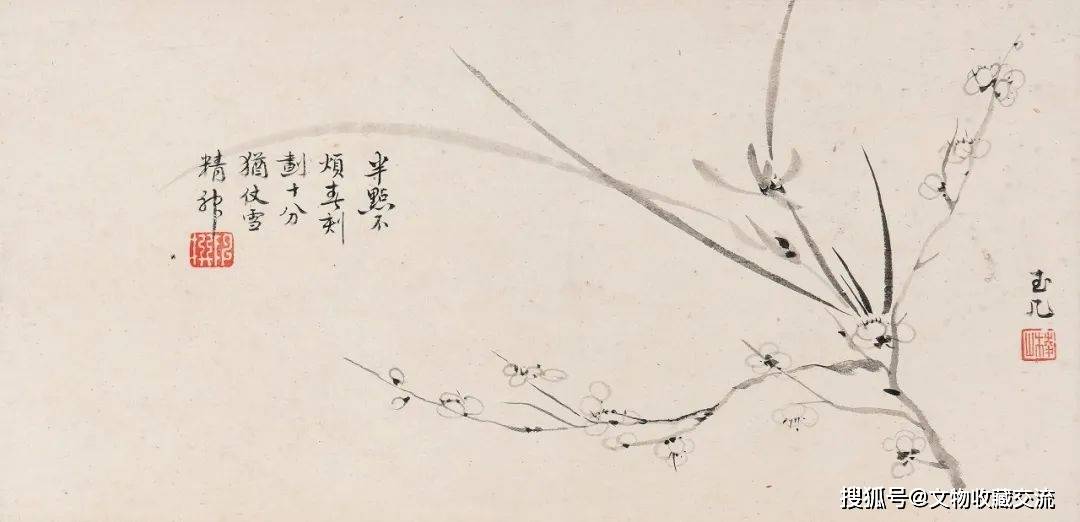 玉几
半點不
煩春刻
劃十分
猶仗雪
精神
搜狐号@文物收藏交流